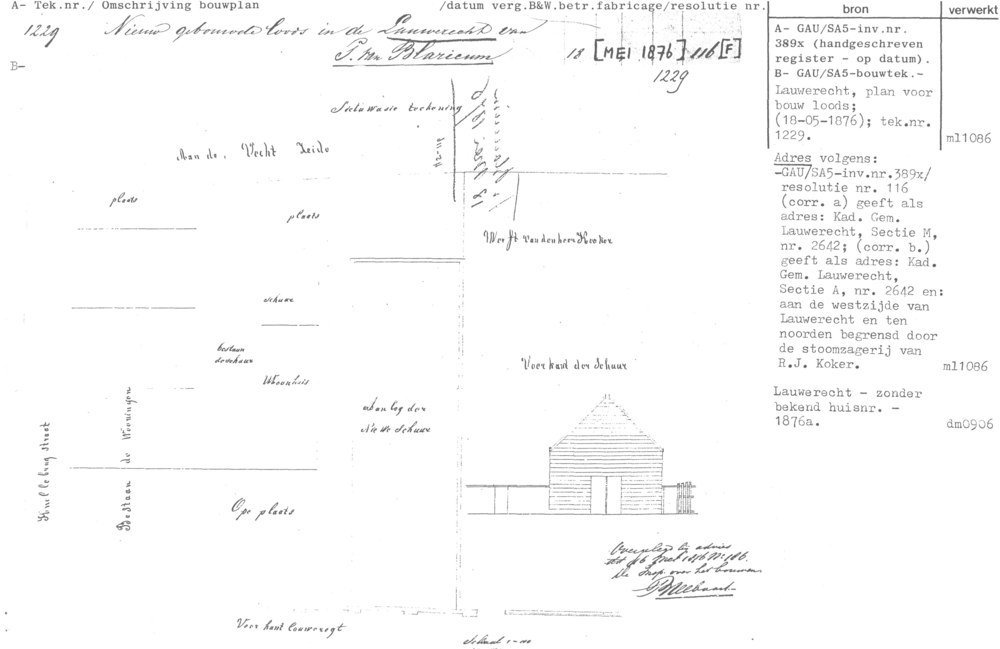 A- Tek.nr./ Omschrijving bouwplan /datum verg.B&W.betr.fabricage/resolutie nr.
bron
verwerkt
1229 Nieuw gebouwde loods in de Lauwerecht van
P. van Blaricum 18 [MEI 1876] 116 [F]
1229
B-
A- GAU/SA5-inv.nr.
389x (handgeschreven
register - op datum).
B- GAU/SA5-bouwtek.-
Lauwerecht, plan voor
bouw loods;
(18-05-1876); tek.nr.
1229.
ml1086
Adres volgens:
-GAU/SA5-inv.nr.389x/
resolutie nr. 116
(corr. a) geeft als
adres: Kad. Gem.
Lauwerecht, Sectie M,
nr. 2642; (corr. b.)
geeft als adres: Kad.
Gem. Lauwerecht,
Sectie A, nr. 2642 en:
aan de westzijde van
Lauwerecht en ten
noorden begrensd door
de stoomzagerij van
R.J. Koker.
ml1086
Lauwerecht - zonder
bekend huisnr. -
1876a.
dm0906
Sietuwasie teekening
Aan de Vecht Zeide
plaats
plaats
Werft van den heer Kooker
schuur
bestaan
de schuur
Woonhuis
Voor kant der Schuur
aan leg der
Nieuwe Schuur
Bestaan de Wooningen
Ope plaats
Overgelegd bij advies
De Insp. over het bouwen
Voor kant lauweregt
Schaal 1-100